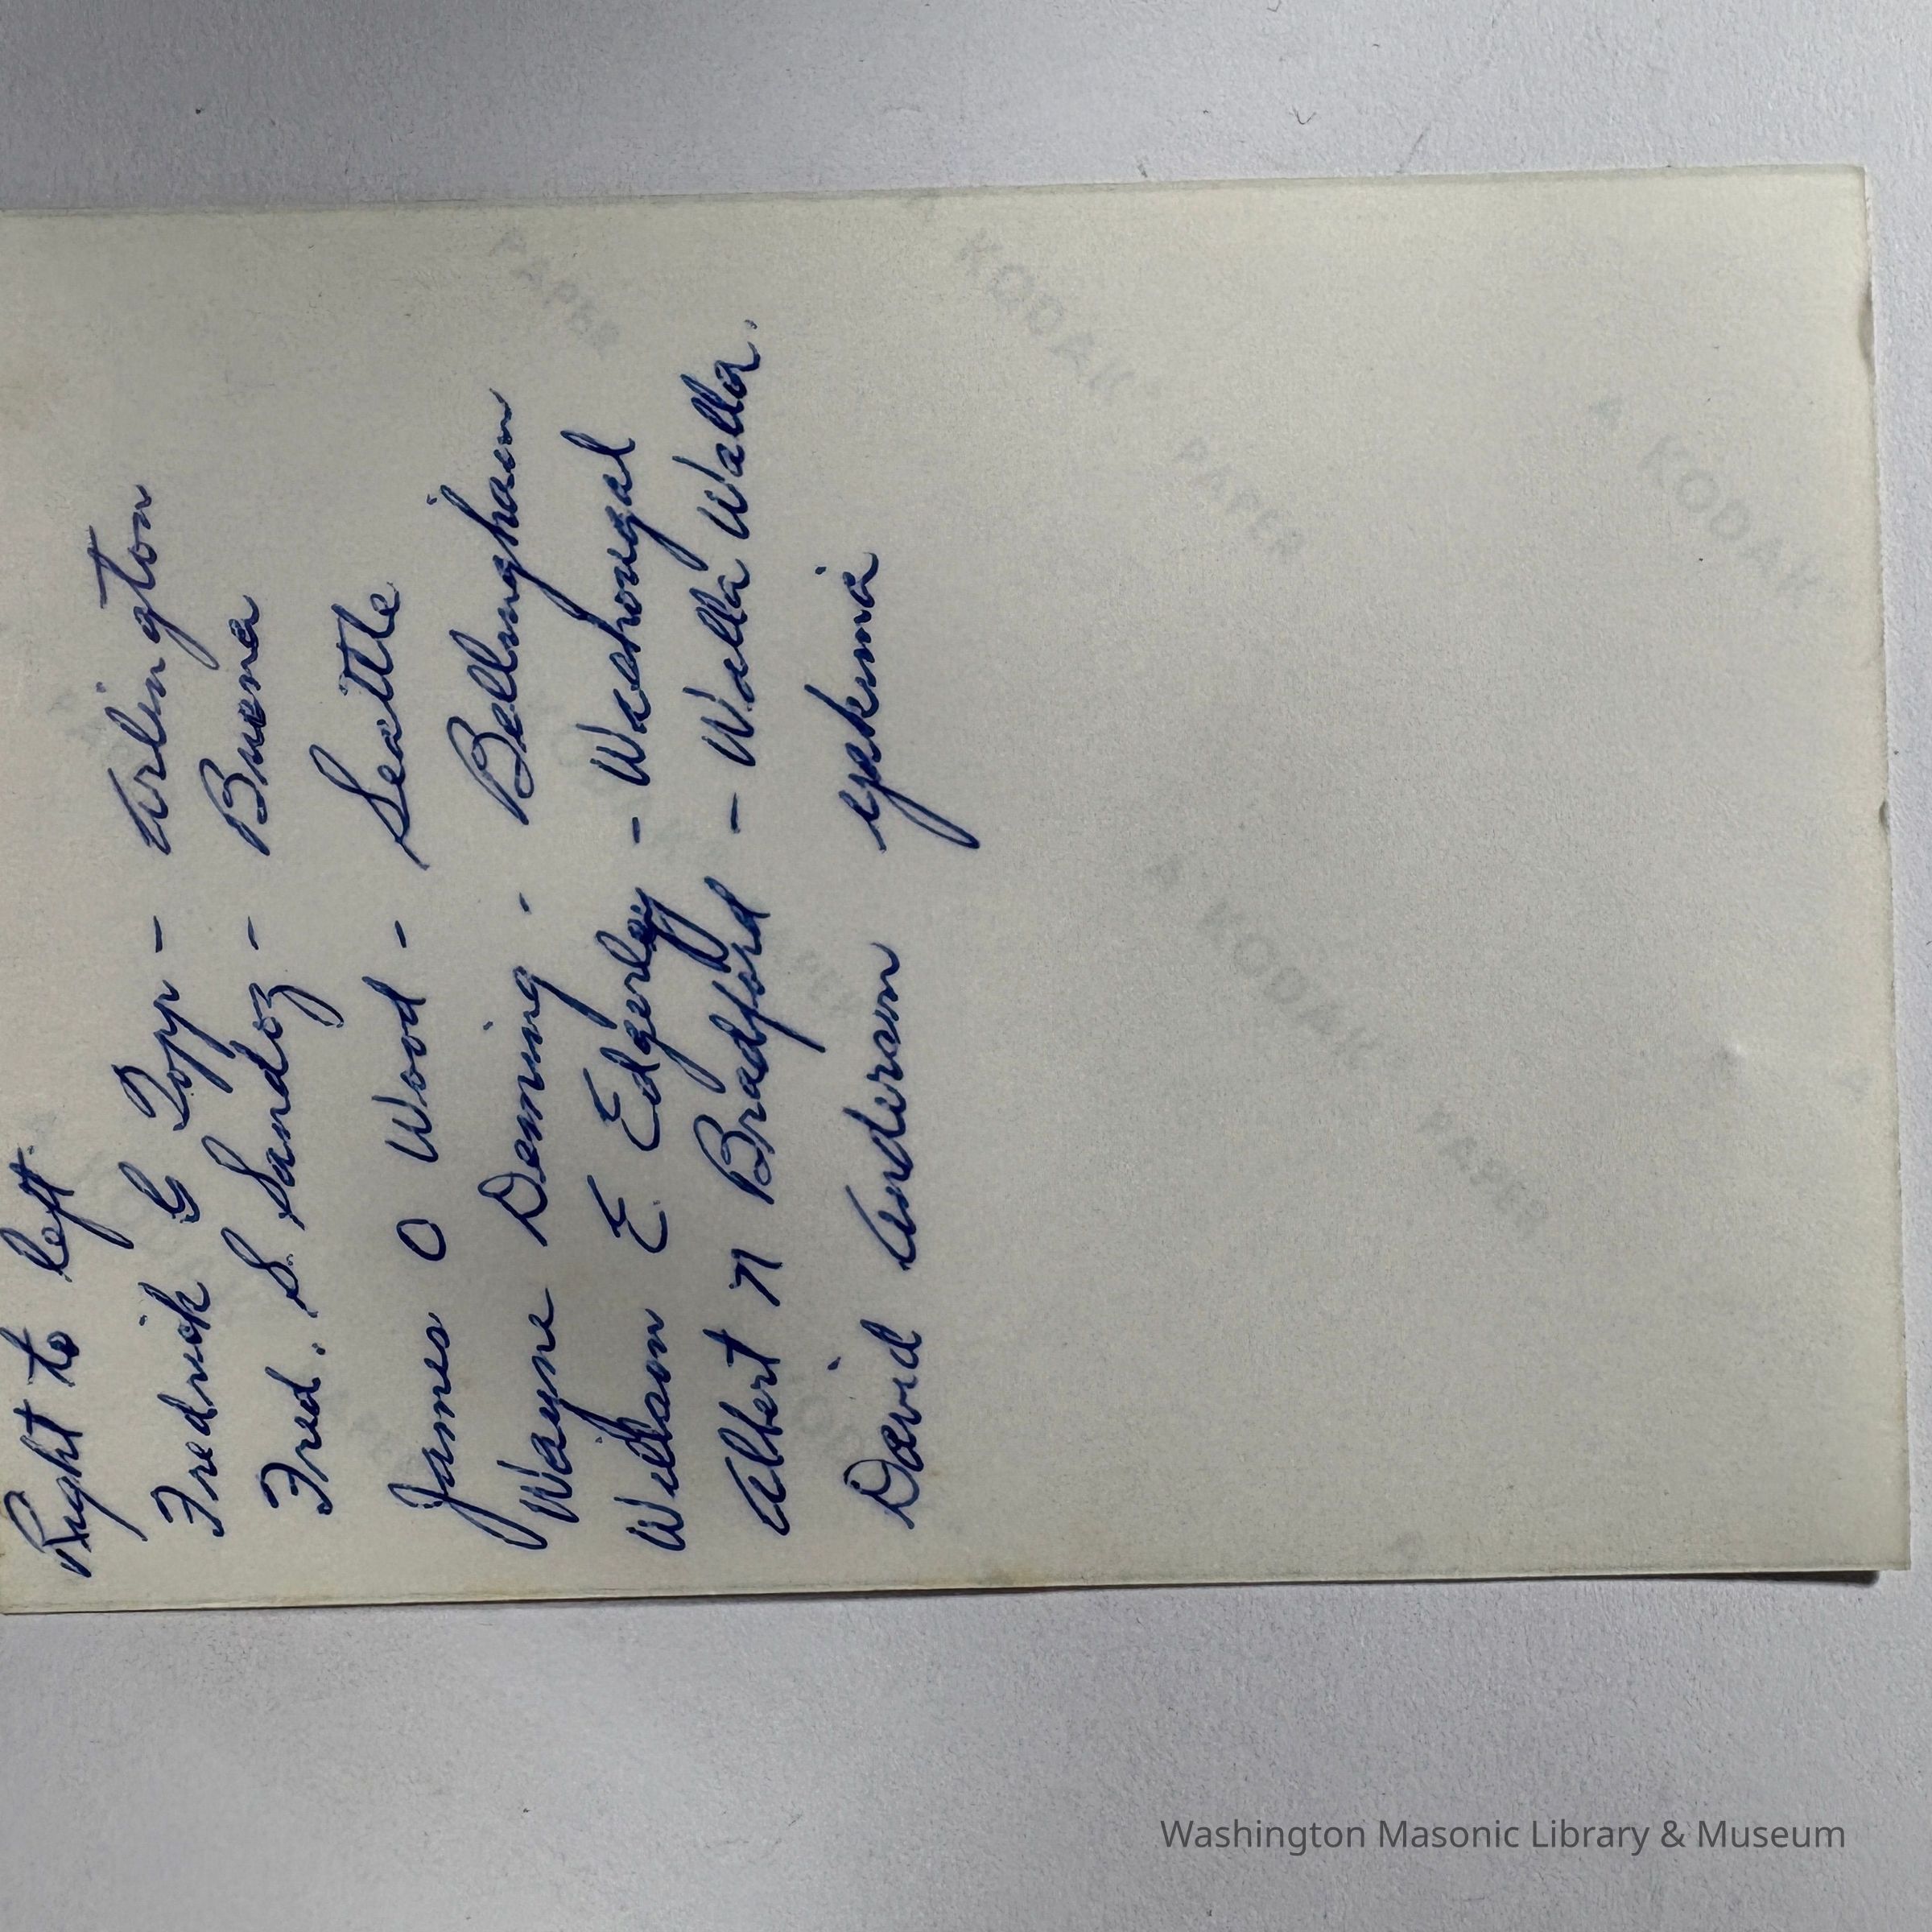 Right to left
Fredrick G Zopp - Arlington
Fred. S. Sandoz - Buena
James O Wood - Seattle
Wayne Deming - Bellingham
Wilson E Edgerley - Washougal
Albert N Bradford - Walla Walla.
David Anderson Yakima
A KODAK PAPER
A KODAK
A KODAK PAPER
Washington Masonic Library & Museum